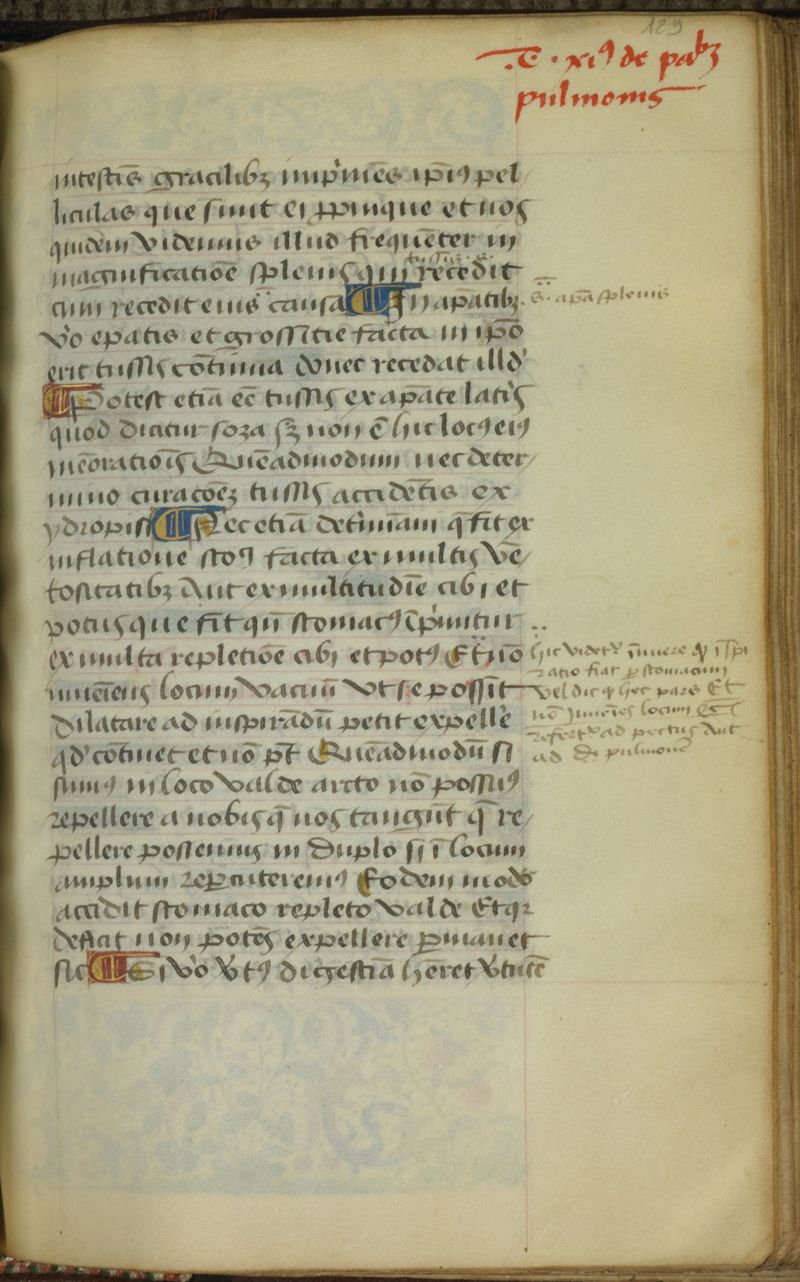 129
.C. xiꝯ de paꝰbꝫ
pulmonis
intestīs gracilibꝫ īmp'mēs ip̄iꝯ pel
liculas que sunt ei ꝓpinque et nos
quidem videmus illud frequēter in
magnificatiōe splenis qm̄ recedit
tussis
cum recedit eius causa In a partibꝫ
s. a pa splenis
v̊o epatis et grossitie facta in ip̄o
erit tussis cōtinua donec recedat illd'
Potest etiā eē tussis ex a parte lat'is
quod dicitur soza sꝫ non ē hic locꝯ eiꝯ
mēoratiōis Quēadmodum nec deter
mino curacōeꝫ tussis accidētis ex
ydropisi Nec etiā det'minam q̄ fit ex
inflatione sto facta ex multis vē
tositatibꝫ Aut ex multitudīe cibi et
potus que fit qn̄ stomacꝯ īp'mitur
ex multa repletiōe cibi et potꝯ Et nō
inueniens locum vacuū vt se possit
dilatare ad inspirādū petit expell'e
qd' cōtinet et nō pt̄ Quēadmodū si
simꝯ in loco valde arcto nō possumꝯ
repellere a nobis q̄ nos tangūt q̄ re
pellere possemus in duplo si ī locum
amplum reperiteremꝯ Eodem modo
accidit stomaco repleto valde Et qꝛ
deflat non potēs expellere ꝑmanet
sic Si v̊o v'tꝯ digestiā h̄eret v'tutē
hic videtꝰ īnuere qꝫ īspi
ratio fiat ꝑ stomacum
vel dic qꝫ hec pars Et
nō inueniēs locum etc̄
refertꝰ ad pectus Aut
ad di pulmone